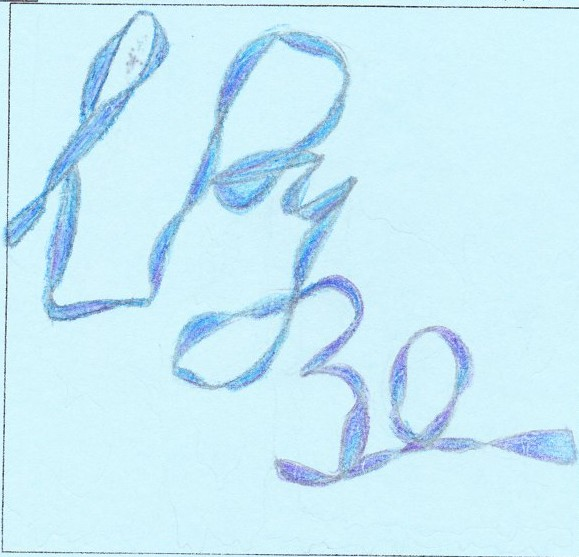 LPy
30